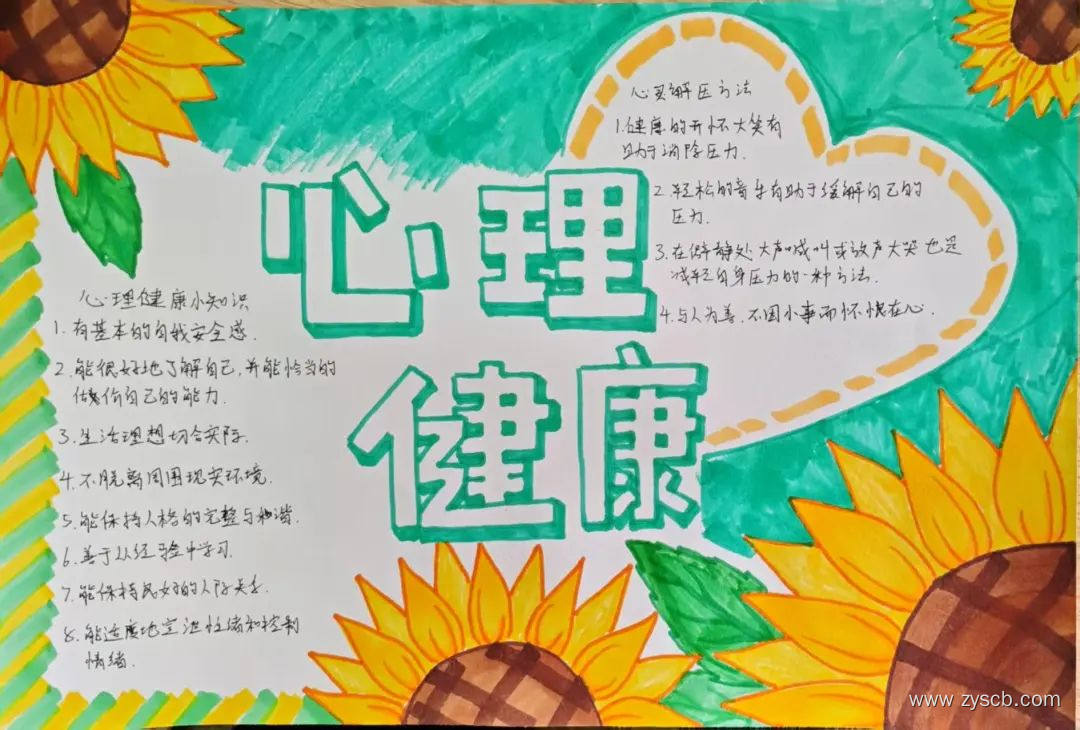 心理
健康
心理健康小知识
1.有基本的自我安全感.
2.能很好地了解自己,并能恰当的
估价自己的能力.
3.生活理想切合实际.
4.不脱离周围现实环境.
5.能保持人格的完整与和谐.
6.善于从经验中学习.
7.能保持良好的人际关系.
8.能适度地宣泄情绪和控制
情绪.
心里解压方法
1.健康的开怀大笑有
助于消除压力.
2.轻松的音乐有助于缓解自己的
压力.
3.在僻静处大声喊叫或放声大哭也是
减轻自身压力的一种方法.
4.与人为善.不因小事而怀恨在心.
www.zyscb.com